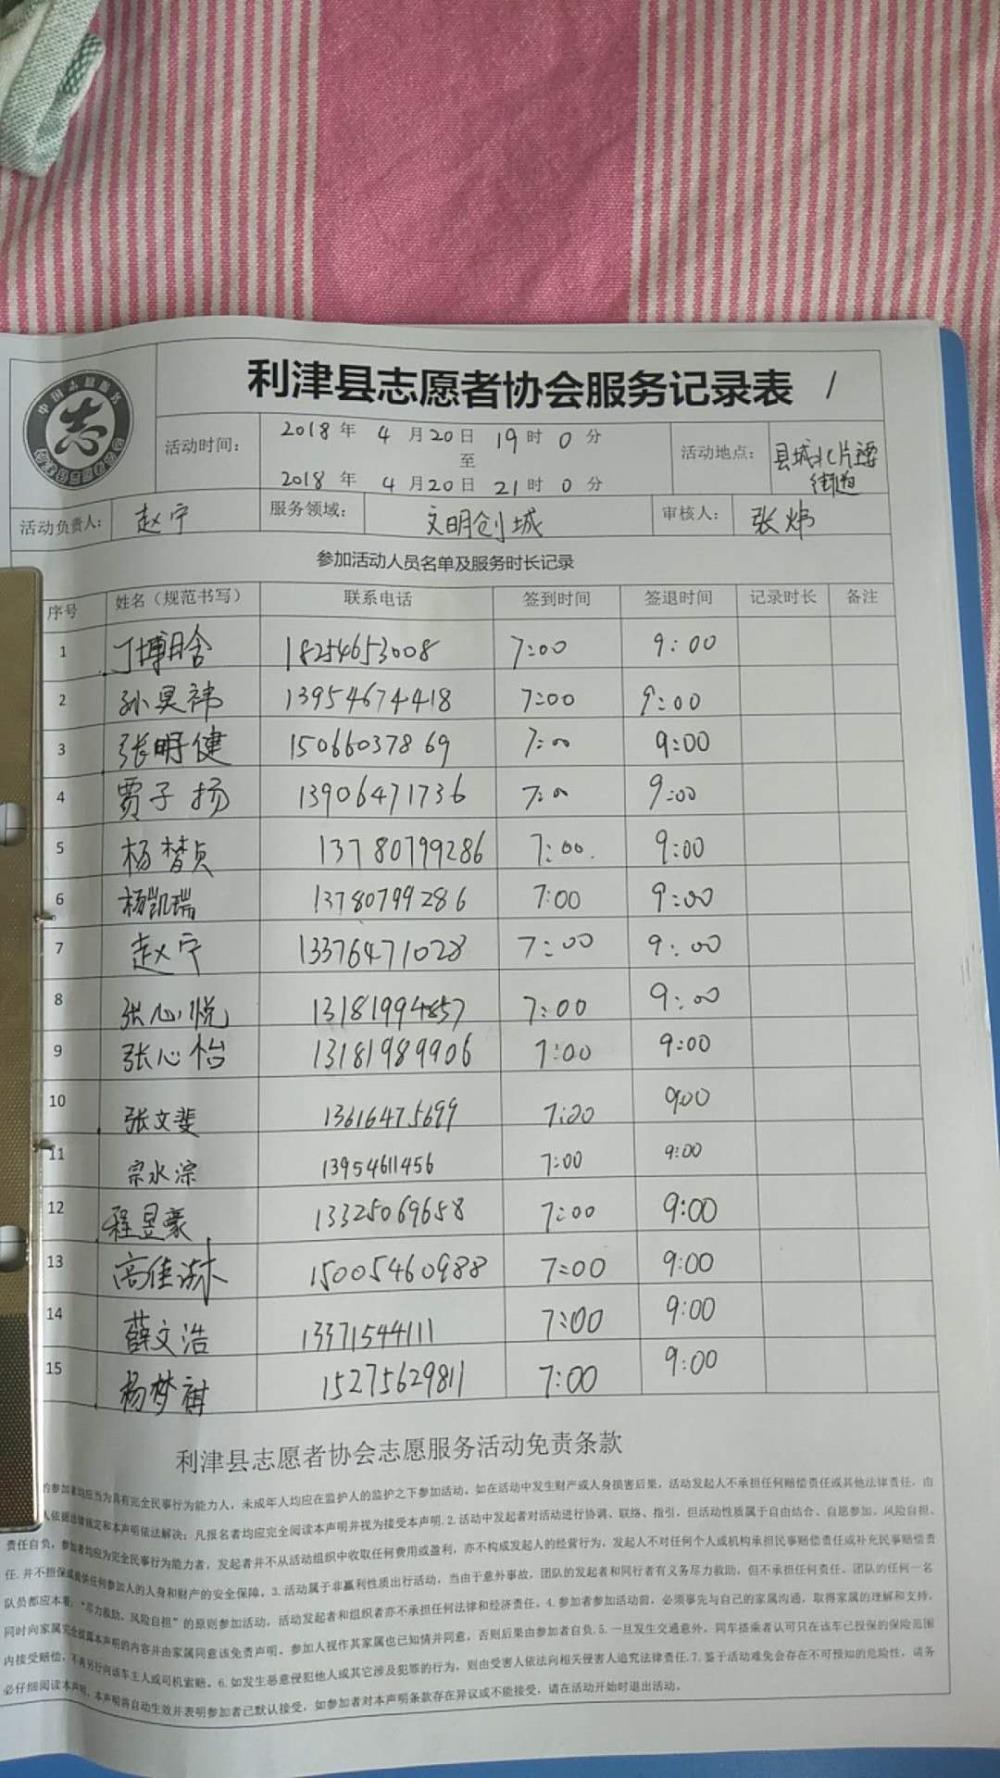 利津县志愿者协会服务记录表 1
中国志愿服务
志
活动时间： 2018年 4月20日 19时 0分
至
2018年 4月20日 21时 0分
活动地点： 县城北片
街道
活动负责人： 赵宁 服务领域： 文明创城 审核人： 张炜
参加活动人员名单及服务时长记录
序号 姓名（规范书写） 联系电话 签到时间 签退时间 记录时长 备注
1 丁博晗 18254653008 7:00 9:00
2 孙昊祎 13954674418 7:00 9:00
3 张明健 15066037869 7:00 9:00
4 贾子扬 13906471736 7:00 9:00
5 杨梦贞 13780799286 7:00 9:00
6 杨凯瑞 13780799286 7:00 9:00
7 赵宁 13376471028 7:00 9:00
8 张心悦 13181994857 7:00 9:00
9 张心怡 13181989906 7:00 9:00
10 张文斐 13616475699 7:00 9:00
11 宗水淙 13954611456 7:00 9:00
12 程昱豪 13325069658 7:00 9:00
13 高佳淋 15005460988 7:00 9:00
14 薛文浩 13371544111 7:00 9:00
15 杨梦祺 15275629811 7:00 9:00
利津县志愿者协会志愿服务活动免责条款
的参加者均应当为具有完全民事行为能力人，未成年人均应在监护人的监护之下参加活动。如在活动中发生财产或人身损害后果，活动发起人不承担任何赔偿责任或其他法律责任，由
人依据法律规定和本声明依法解决；凡报名者均应完全阅读本声明并视为接受本声明.2.活动中发起者对活动进行协调、联络、指引，但活动性质属于自由结合、自愿参加、风险自担、
责任自负，参加者均应为完全民事行为能力者，发起者并不从活动组织中收取任何费用或盈利，亦不构成发起人的经营行为，发起人不对任何个人或机构承担民事赔偿责任或补充民事赔偿责
任.并不担保或提供任何参加人的人身和财产的安全保障。3.活动属于非赢利性质出行活动，当由于意外事故，团队的发起者和同行者有义务尽力救助，但不承担任何责任。团队的任何一名
队员都应本着：“尽力救助、风险自担”的原则参加活动，活动发起者和组织者亦不承担任何法律和经济责任。4.参加者参加活动前，必须事先与自己的家属沟通，取得家属的理解和支持，
同时向家属完全披露本声明的内容并由家属同意该免责声明。参加人视作其家属也已知情并同意，否则后果由参加者自负.5.一旦发生交通意外，同车搭乘者认可只在该车已投保的保险范围
内接受赔偿，不再另行向该车主人或司机索赔。6.如发生恶意侵犯他人或其它涉及犯罪的行为，则由受害人依法向相关侵害人追究法律责任.7.鉴于活动难免会存在不可预知的危险性，请务
必仔细阅读本声明，本声明将自动生效并表明参加者已默认接受，如参加者对本声明条款存在异议或不能接受，请在活动开始时退出活动。